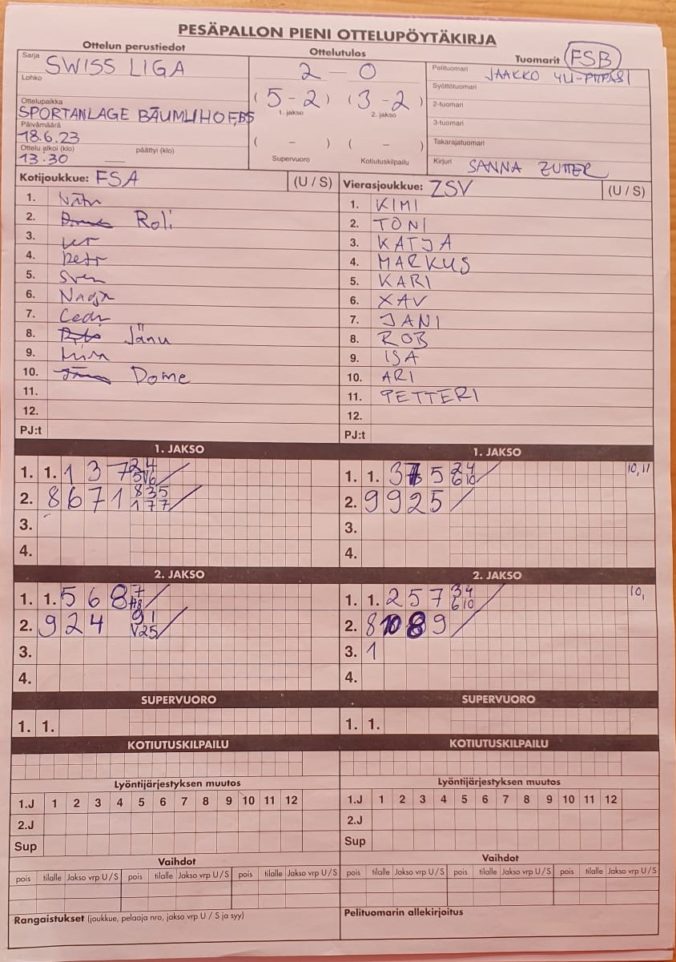 PESÄPALLON PIENI OTTELUPÖYTÄKIRJA
Ottelun perustiedot Ottelutulos Tuomarit FSB
Sarja SWISS LIGA 2 - 0 Pelituomari JAAKKO
Lohko Syöttötuomari
Ottelupaikka SPORTANLAGE BÄUMLIHOF,BS (5-2) (3-2) 2-tuomari
1. jakso 2. jakso 3-tuomari
Päivämäärä 18.6.23 ( - ) ( - ) Takarajatuomari
Ottelu alkoi (klo) 13.30 päättyi (klo) Supervuoro Kotiutuskilpailu Kirjuri SANNA ZUTTER
Kotijoukkue: FSA (U / S) Vierasjoukkue: ZSV (U / S)
1. 1. KIMI
2. Roli 2. TONI
3. 3. KATJA
4. 4. MARKUS
5. Sven 5. KARI
6. 6. XAV
7. 7. JANI
8. Jänu 8. ROB
9. 9. ISA
10. Dome 10. ARI
11. 11. PETTERI
12. 12.
PJ:t PJ:t
1. JAKSO 1. JAKSO
1. 1. 1 3 7 1. 1. 3 5 24 10, 11
6 10
2. 8 6 7 1 835 2. 9 9 2 5
177
3. 3.
4. 4.
2. JAKSO 2. JAKSO
1. 1. 5 6 8 7 1. 1. 2 5 7 34 10,
6 10
2. 9 2 4 91 2. 8 10 8 9
V25
3. 3. 1
4. 4.
SUPERVUORO SUPERVUORO
1. 1. 1. 1.
KOTIUTUSKILPAILU KOTIUTUSKILPAILU
Lyöntijärjestyksen muutos Lyöntijärjestyksen muutos
1.J 1 2 3 4 5 6 7 8 9 10 11 12 1.J 1 2 3 4 5 6 7 8 9 10 11 12
2.J 2.J
Sup Sup
Vaihdot Vaihdot
pois tilalle Jakso vrp U/S pois tilalle Jakso vrp U/S pois tilalle Jakso vrp U/S pois tilalle Jakso vrp U/S pois tilalle Jakso vrp U/S pois tilalle Jakso vrp U/S
Rangaistukset (joukkue, pelaaja nro, jakso vrp U / S ja syy) Pelituomarin allekirjoitus